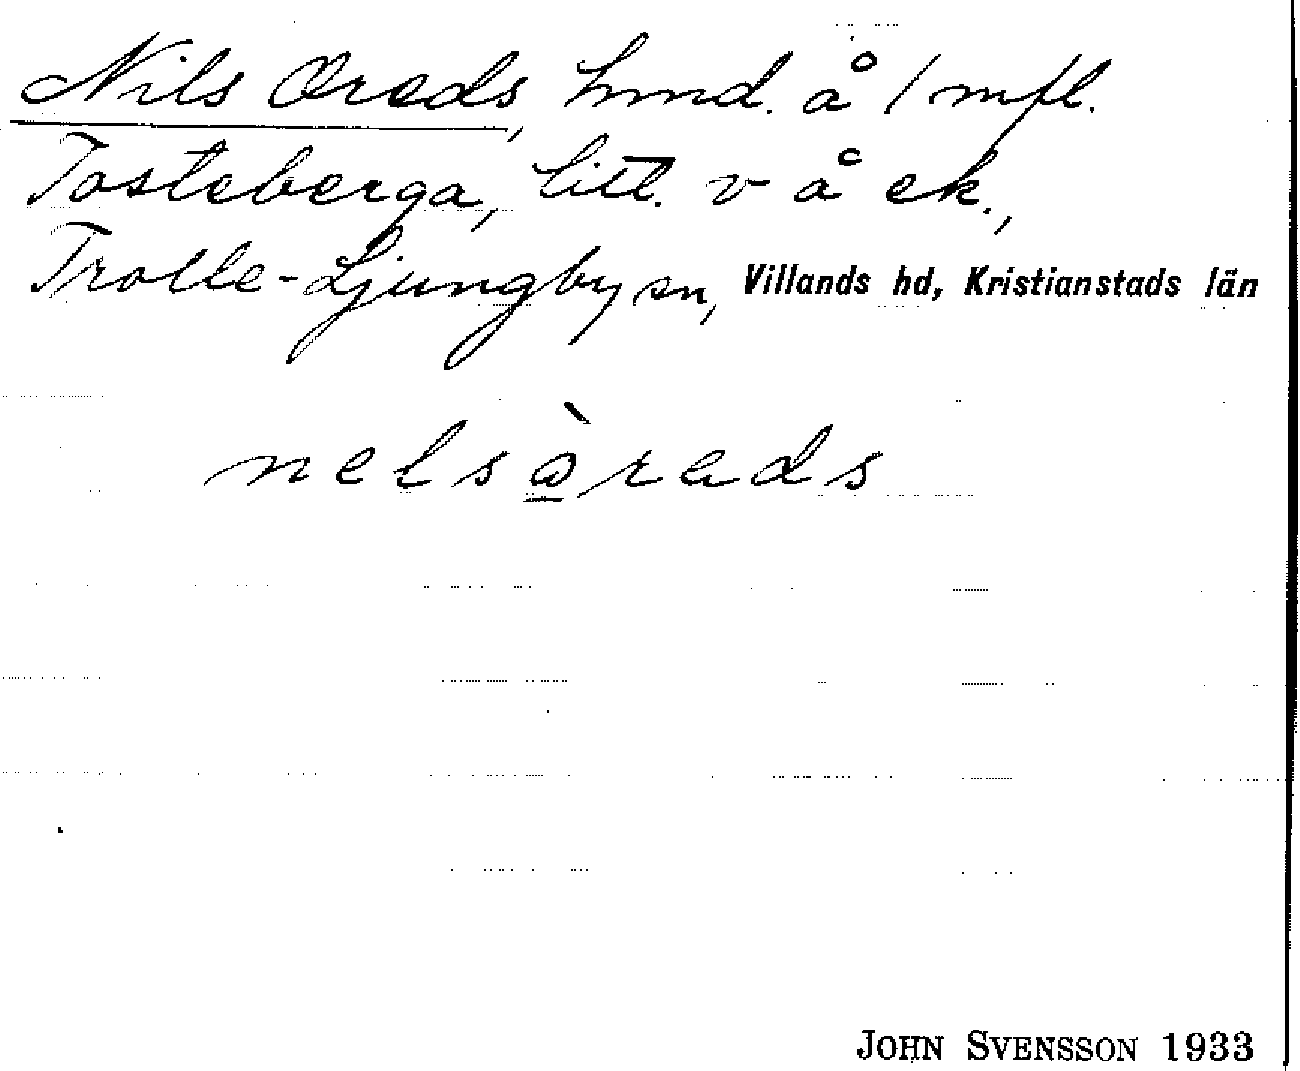 Nils Oreds, hmd. å 1 mfl.
Tosteberga, litt. v å ek.,
Trolle-Ljungby sn, Villands hd, Kristianstads län
nelsòrads
JOHN SVENSSON 1933